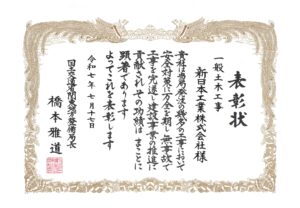 表彰状
一般土木工事
新日本工業株式会社様
貴社は当局発注の標記の工事において
安全対策に万全を期し無事故で
工事を完遂し建設事業の推進に
貢献されその功績はまことに
顕著であります
よってこれを表彰します
令和七年七月十七日
国土交通省関東地方整備局長
橋本雅道